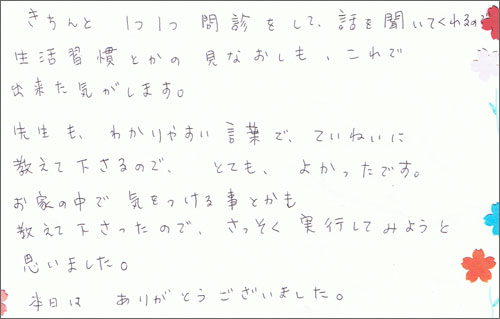 きちんと 1つ1つ 問診をして、話を聞いてくれるので
生活習慣とかの 見なおしも、これで
出来た気がします。
先生も、わかりやすい言葉で、ていねいに
教えて下さるので、とても、よかったです。
お家の中で 気をつける事とかも
教えて下さったので、さっそく実行してみようと
思いました。
本日は ありがとうございました。